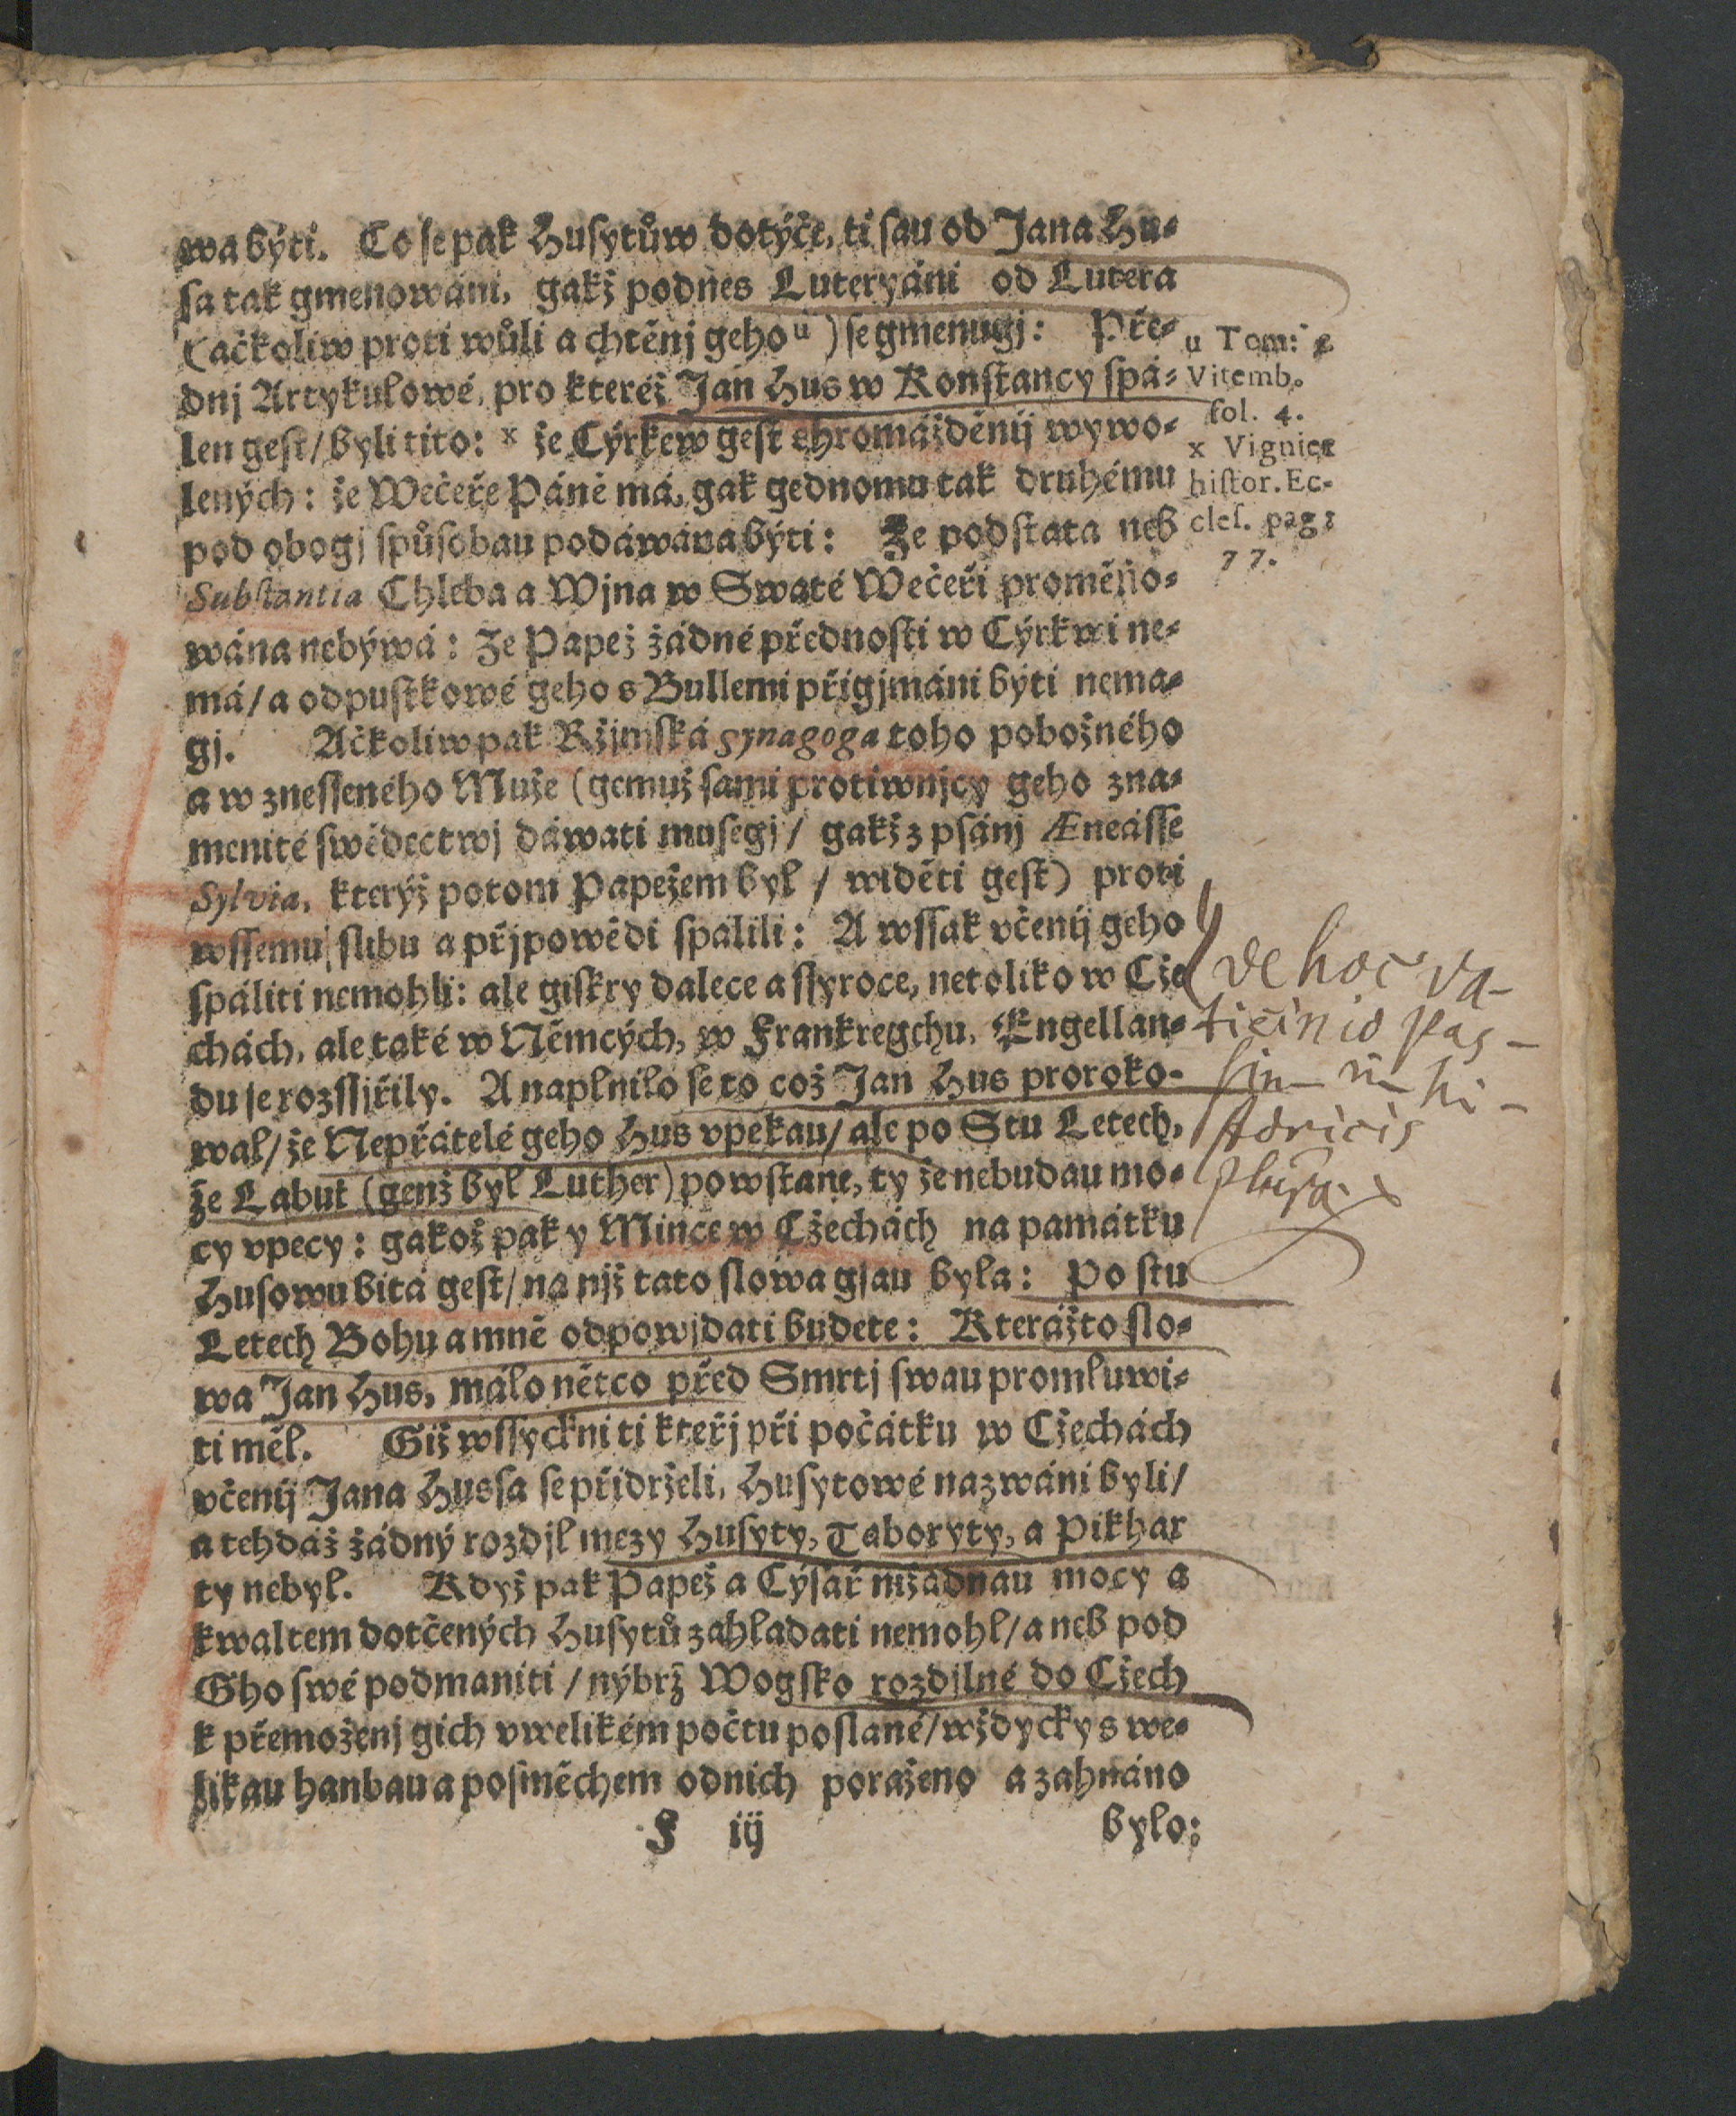 wa býti. Co se pak Husytůw dotýče, ti sau od Jana Hu-
sa tak gmenowáni, gakž podnes Luteryáni od Lutera
(ačkoliw proti wůli a chtěnj geho u) se gmenugj: Pře-
dnj Artykulowé, pro kteréž Jan Hus w Konstancy spá-
len gest / byli tito: x že Cýrkew gest shromážděnij wywo-
lených: že Wečeře Páně má, gak gednomu tak druhému
pod obogj spůsobau podáwána býti: Že podstata neb
Substantia Chleba a Wjna w Swaté Wečeři proměňo-
wána nebýwá: Že Papež žádné přednosti w Cýrkwi ne-
má / a odpustkowé geho s Bullemi přigjmáni býti nema-
gj. Ačkoliw pak Ržjmská synagoga toho pobožného
a wzneſſeného Muže (gemuž sami protiwnjcy geho zna-
menité swědectwj dáwati musegj / gakž z psánj Æneáſſe
Sylvia, kterýž potom Papežem byl / widěti gest) proti
wſſemu slibu a přjpowědi spálili: A wſſak včenij geho
spáliti nemohli: ale giskry dalece a ſſyroce, netoliko w Cže-
chách, ale také w Němcých, w Frankregchu, Engellan-
du se rozſſjřily. A naplnilo se to což Jan Hus proroko-
wal / že Nepřátelé geho Hus vpekau / ale po Stu Letech,
že Labuť (genž byl Luther) powstane, ty že nebudau mo-
cy vpecy: gakož pak y Mince w Cžechách na památku
Husowu bitá gest / na njž tato slowa gsau byla: Po stu
Letech Bohu a mně odpowjdati budete: Kterážto slo-
wa Jan Hus, málo nětco před Smrtj swau promluwi-
ti měl. Giž wſſyckni ti kteřj při počátku w Cžechách
včenij Jana Hussa se přidrželi, Husytowé nazwáni byli /
a tehdáž žádný rozdjl mezy Husyty, Taboryty, a Pikhar
ty nebyl. Když pak Papež a Cýsař nižádnau mocy a
kwaltem dotčených Husytů zahladati nemohl / aneb pod
Gho swé podmaniti / nýbrž Wogsko rozdjlné do Cžech
k přemoženj gich vwelikém počtu poslané / wždycky s we-
likau hanbau a posměchem od nich poraženo a zahnáno
F iij bylo:
u Tom:
Vitemb.
fol. 4.
x Vignier
histor. Ec-
cles. pag:
77.
de hoc va-
ticinio pas-
sim in hi-
storicis
plura